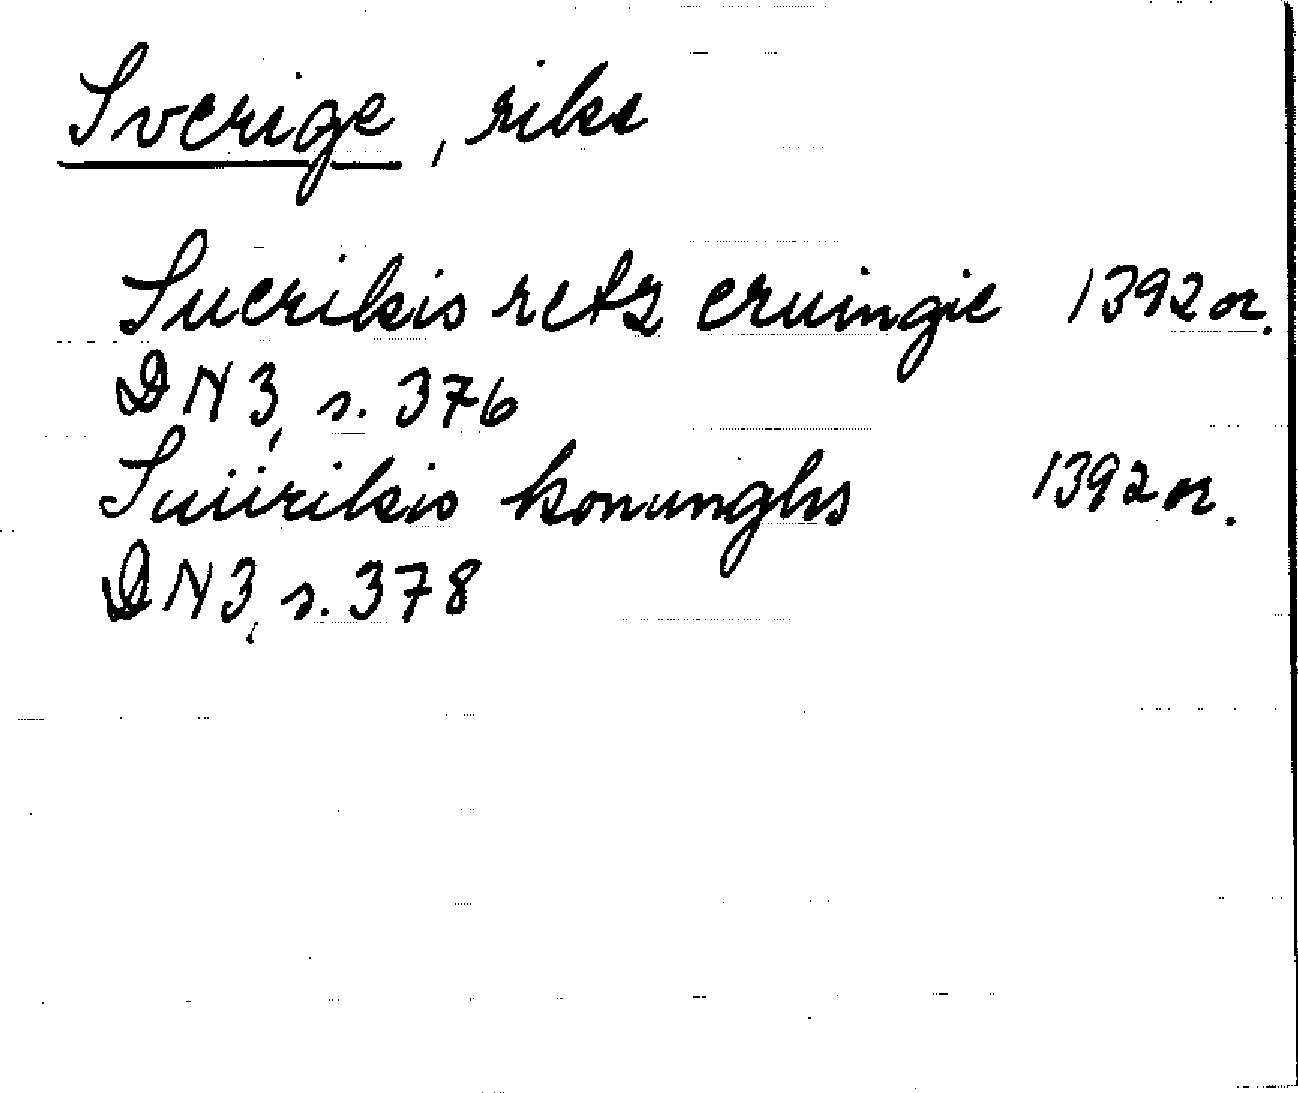 Sverige, rike
Suerikis retz eruingie 1392 or.
DN 3, s. 376
Suiirikis konunghs 1392 or.
DN 3, s. 378